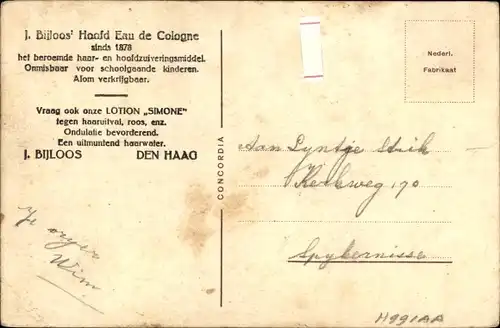 J. Bijloos' Hoofd Eau de Cologne
sinds 1878
het beroemde haar- en hoofdzuiveringsmiddel.
Onmisbaar voor schoolgaande kinderen.
Alom verkrijgbaar.
Vraag ook onze LOTION „SIMONE"
tegen haaruitval, roos, enz.
Ondulatie bevorderend.
Een uitmuntend haarwater.
J. BIJLOOS DEN HAAG
Wim
CONCORDIA
Nederl.
Fabrikaat
Aan Lyntje
Kerkweg 170
Spykernisse
H991AA